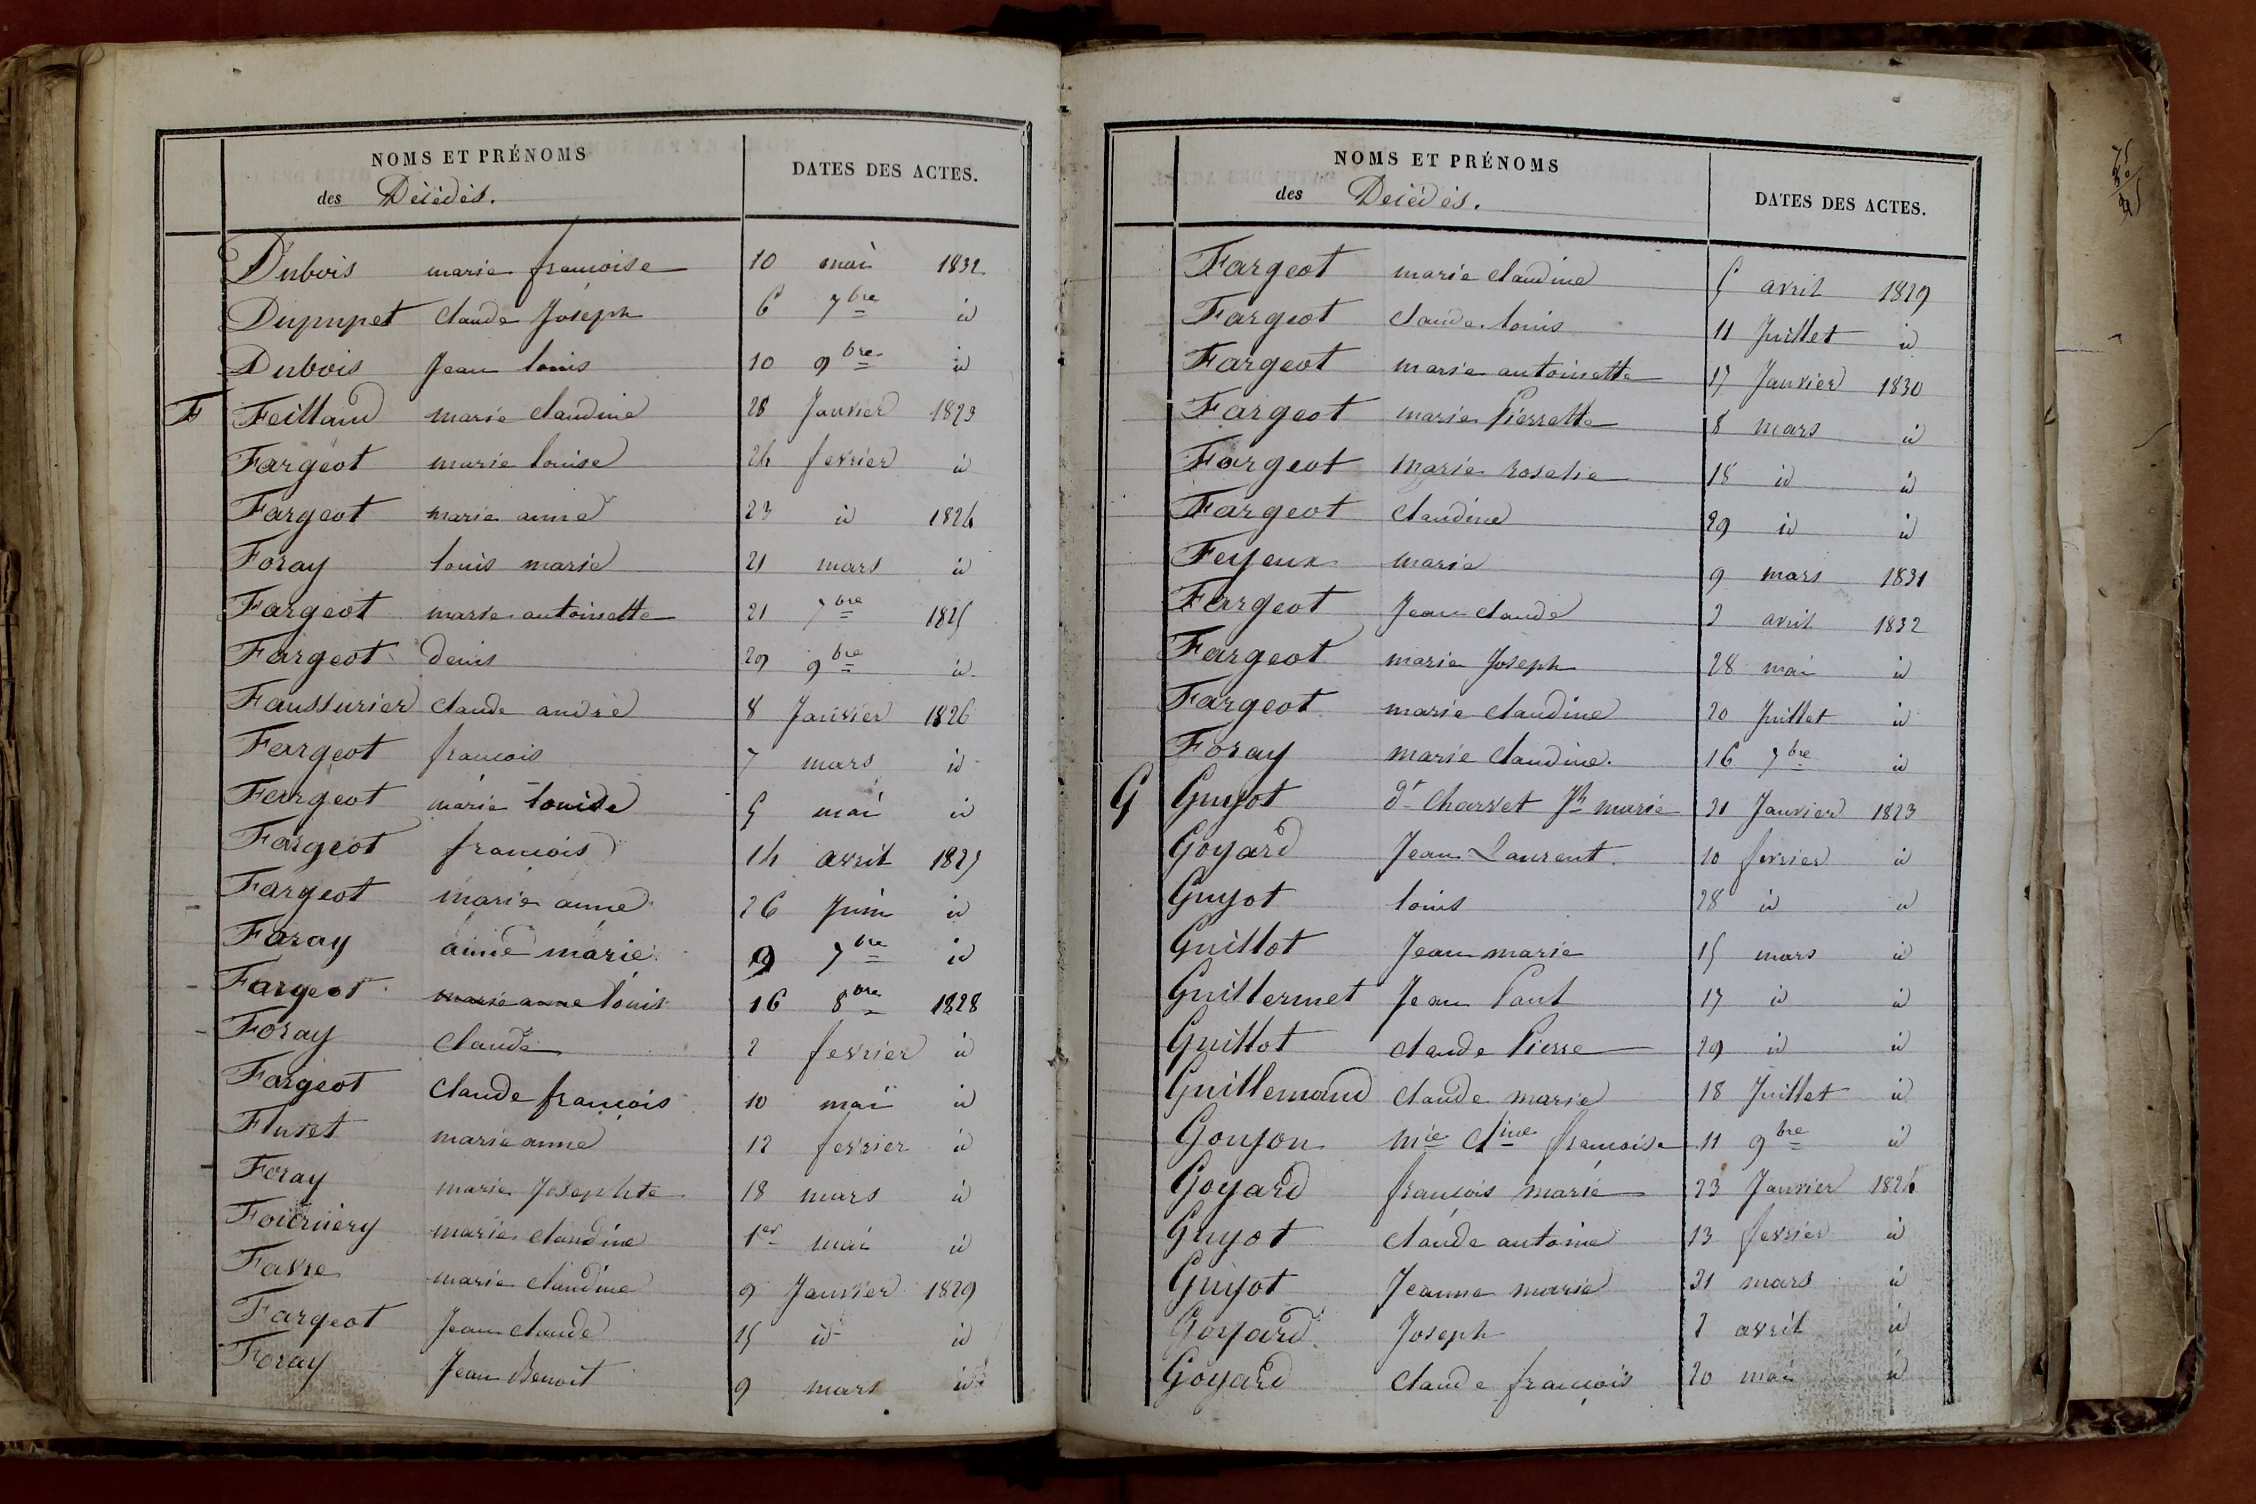 NOMS ET PRÉNOMS
des Décédés.
DATES DES ACTES.
Dubois marie francoise 10 mai 1832
Dupupet claude Joseph 6 7bre id
Dubois Jean louis 10 9bre id
F Feilland marie claudine 28 Janvier 1823
Fargeot marie louise 24 fevrier id
Fargeot marie anne 23 id 1824
Foray louis marie 21 mars id
Fargeot marie antoinette 21 7bre 1825
Fargeot denis 29 9bre id
Faussurier claude andré 8 Janvier 1826
Fargeot francois 7 mars id
Fargeot marie louise 5 mai id
Fargeot francois 14 avril 1827
Fargeot marie anne 26 Juin id
Foray anne marie 9 7bre id
Fargeot marie anne louis 16 8bre 1828
Foray claude 2 fevrier id
Fargeot claude françois 10 mai id
Fluret marie anne 12 fevrier id
Foray marie Josephte 18 mars id
Fournery marie claudine 1er mai id
Favre marie claudine 9 Janvier 1829
Fargeot Jean claude 15 id id
Foray Jean Benoit 9 mars id
NOMS ET PRÉNOMS
des Décédés.
DATES DES ACTES.
Fargeot marie claudine 5 avril 1829
Fargeot claude louis 11 Juillet id
Fargeot marie antoinette 17 Janvier 1830
Fargeot marie Pierrette 8 mars id
Fargeot marie rosalie 18 id id
Fargeot claudine 29 id id
Feyeux marie 9 mars 1831
Fargeot Jean claude 2 avril 1832
Fargeot marie Joseph 28 mai id
Fargeot marie claudine 20 Juillet id
Foray marie claudine. 16 7bre id
G Guyot dt Charvet Ph marie 21 Janvier 1823
Goyard Jean Laurent. 10 fevrier id
Guyot louis 28 id id
Guillot Jean marie 15 mars id
Guillermet Jean Paul 17 id id
Guillot claude Pierre 29 id id
Guillemaud claude marie 18 Juillet id
Goujon mie Cine francoise 11 9bre id
Goyard françois marie 23 Janvier 1824
Guyot claude antoine 13 fevrier id
Guyot Jeanne marie 21 mars id
Goyard Joseph 2 avril id
Goyard claude françois 20 mai id